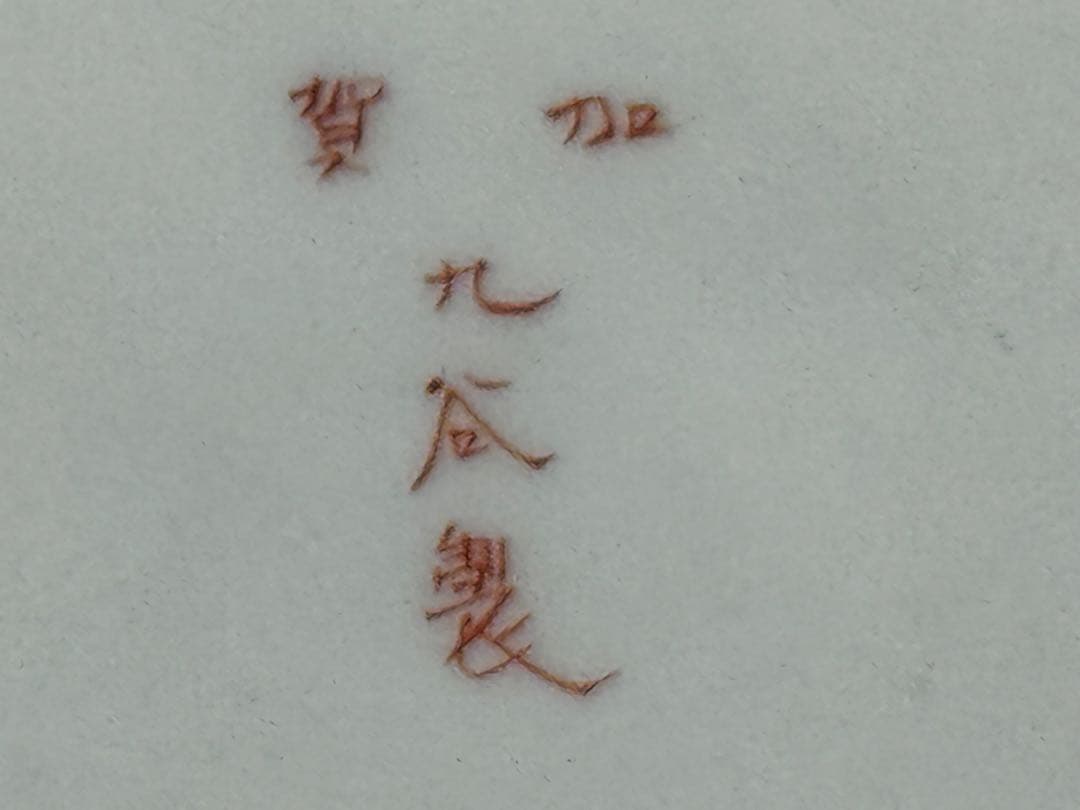 加賀
九谷製